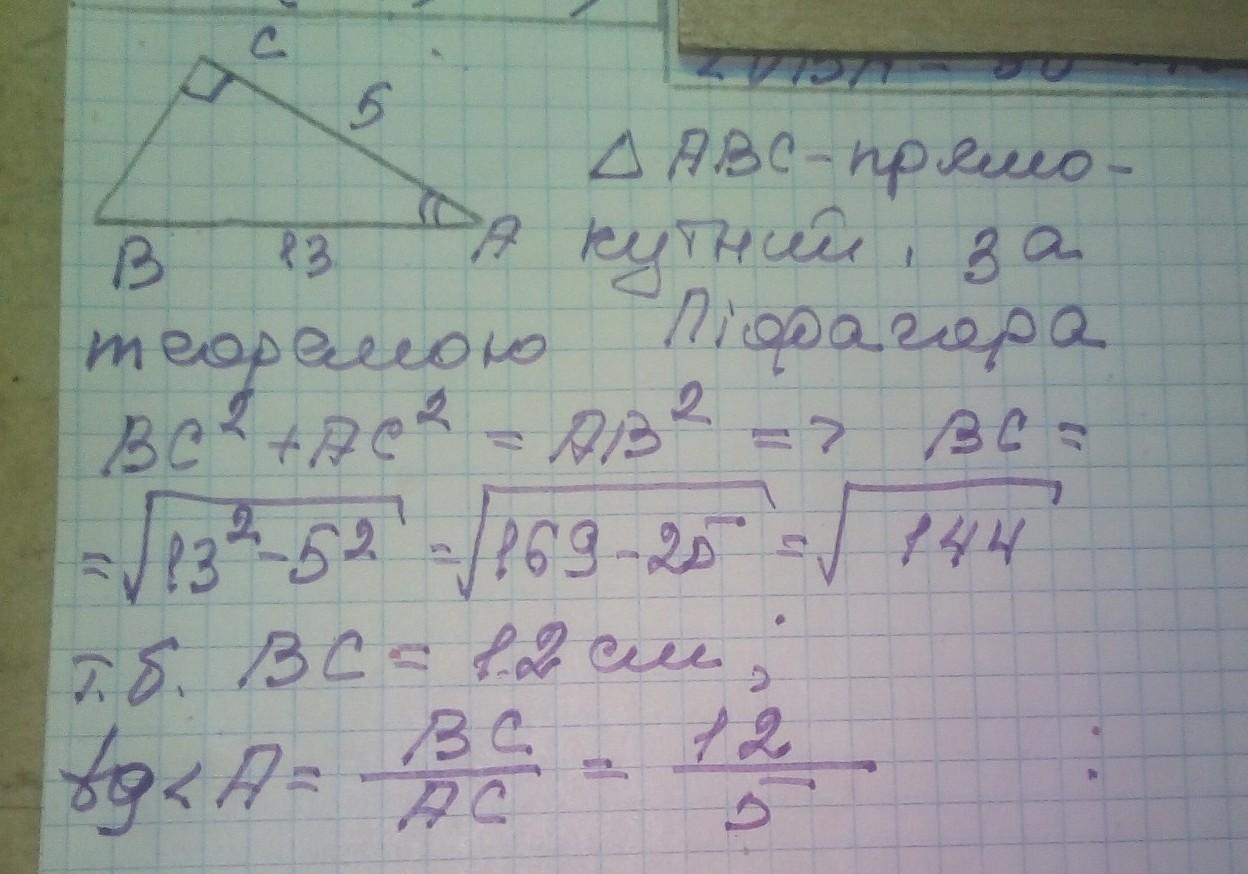 C
5
B 13 A
△ ABC - прямо-
кутний, за
теоремою Піфагора
BC² + AC² = AB² => BC =
= √13² - 5² = √169 - 25 = √144
т.б. BC = 12 см;
tg < A = BC/AC = 12/5 :